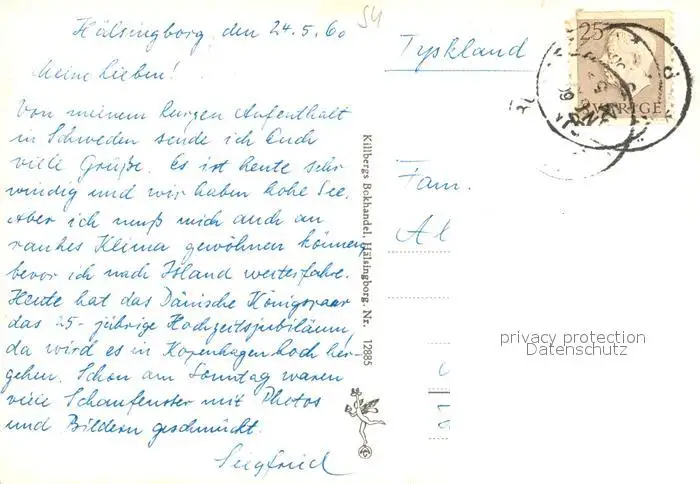 Hälsingborg, den 24.5.60
Meine Lieben!
Von meinem kurzen Aufenthalt
in Schweden sende ich Euch
viele Grüße. Es ist heute sehr
windig und wir haben hohe See.
Aber ich muß mich auch an
rauhes Klima gewöhnen können,
bevor ich nach Island weiterfahre.
Heute hat das Dänische Königspaar
das 25-jährige Hochzeitsjubiläum,
da wird es in Kopenhagen hoch her-
gehen. Schon am Sonntag waren
viele Schaufenster mit Photos
und Bildern geschmückt.
Siegfried
Killbergs Bokhandel, Hälsingborg. Nr. 12885
54
Tyskland
25
SVERIGE
Fam.
Al
privacy protection
Datenschutz